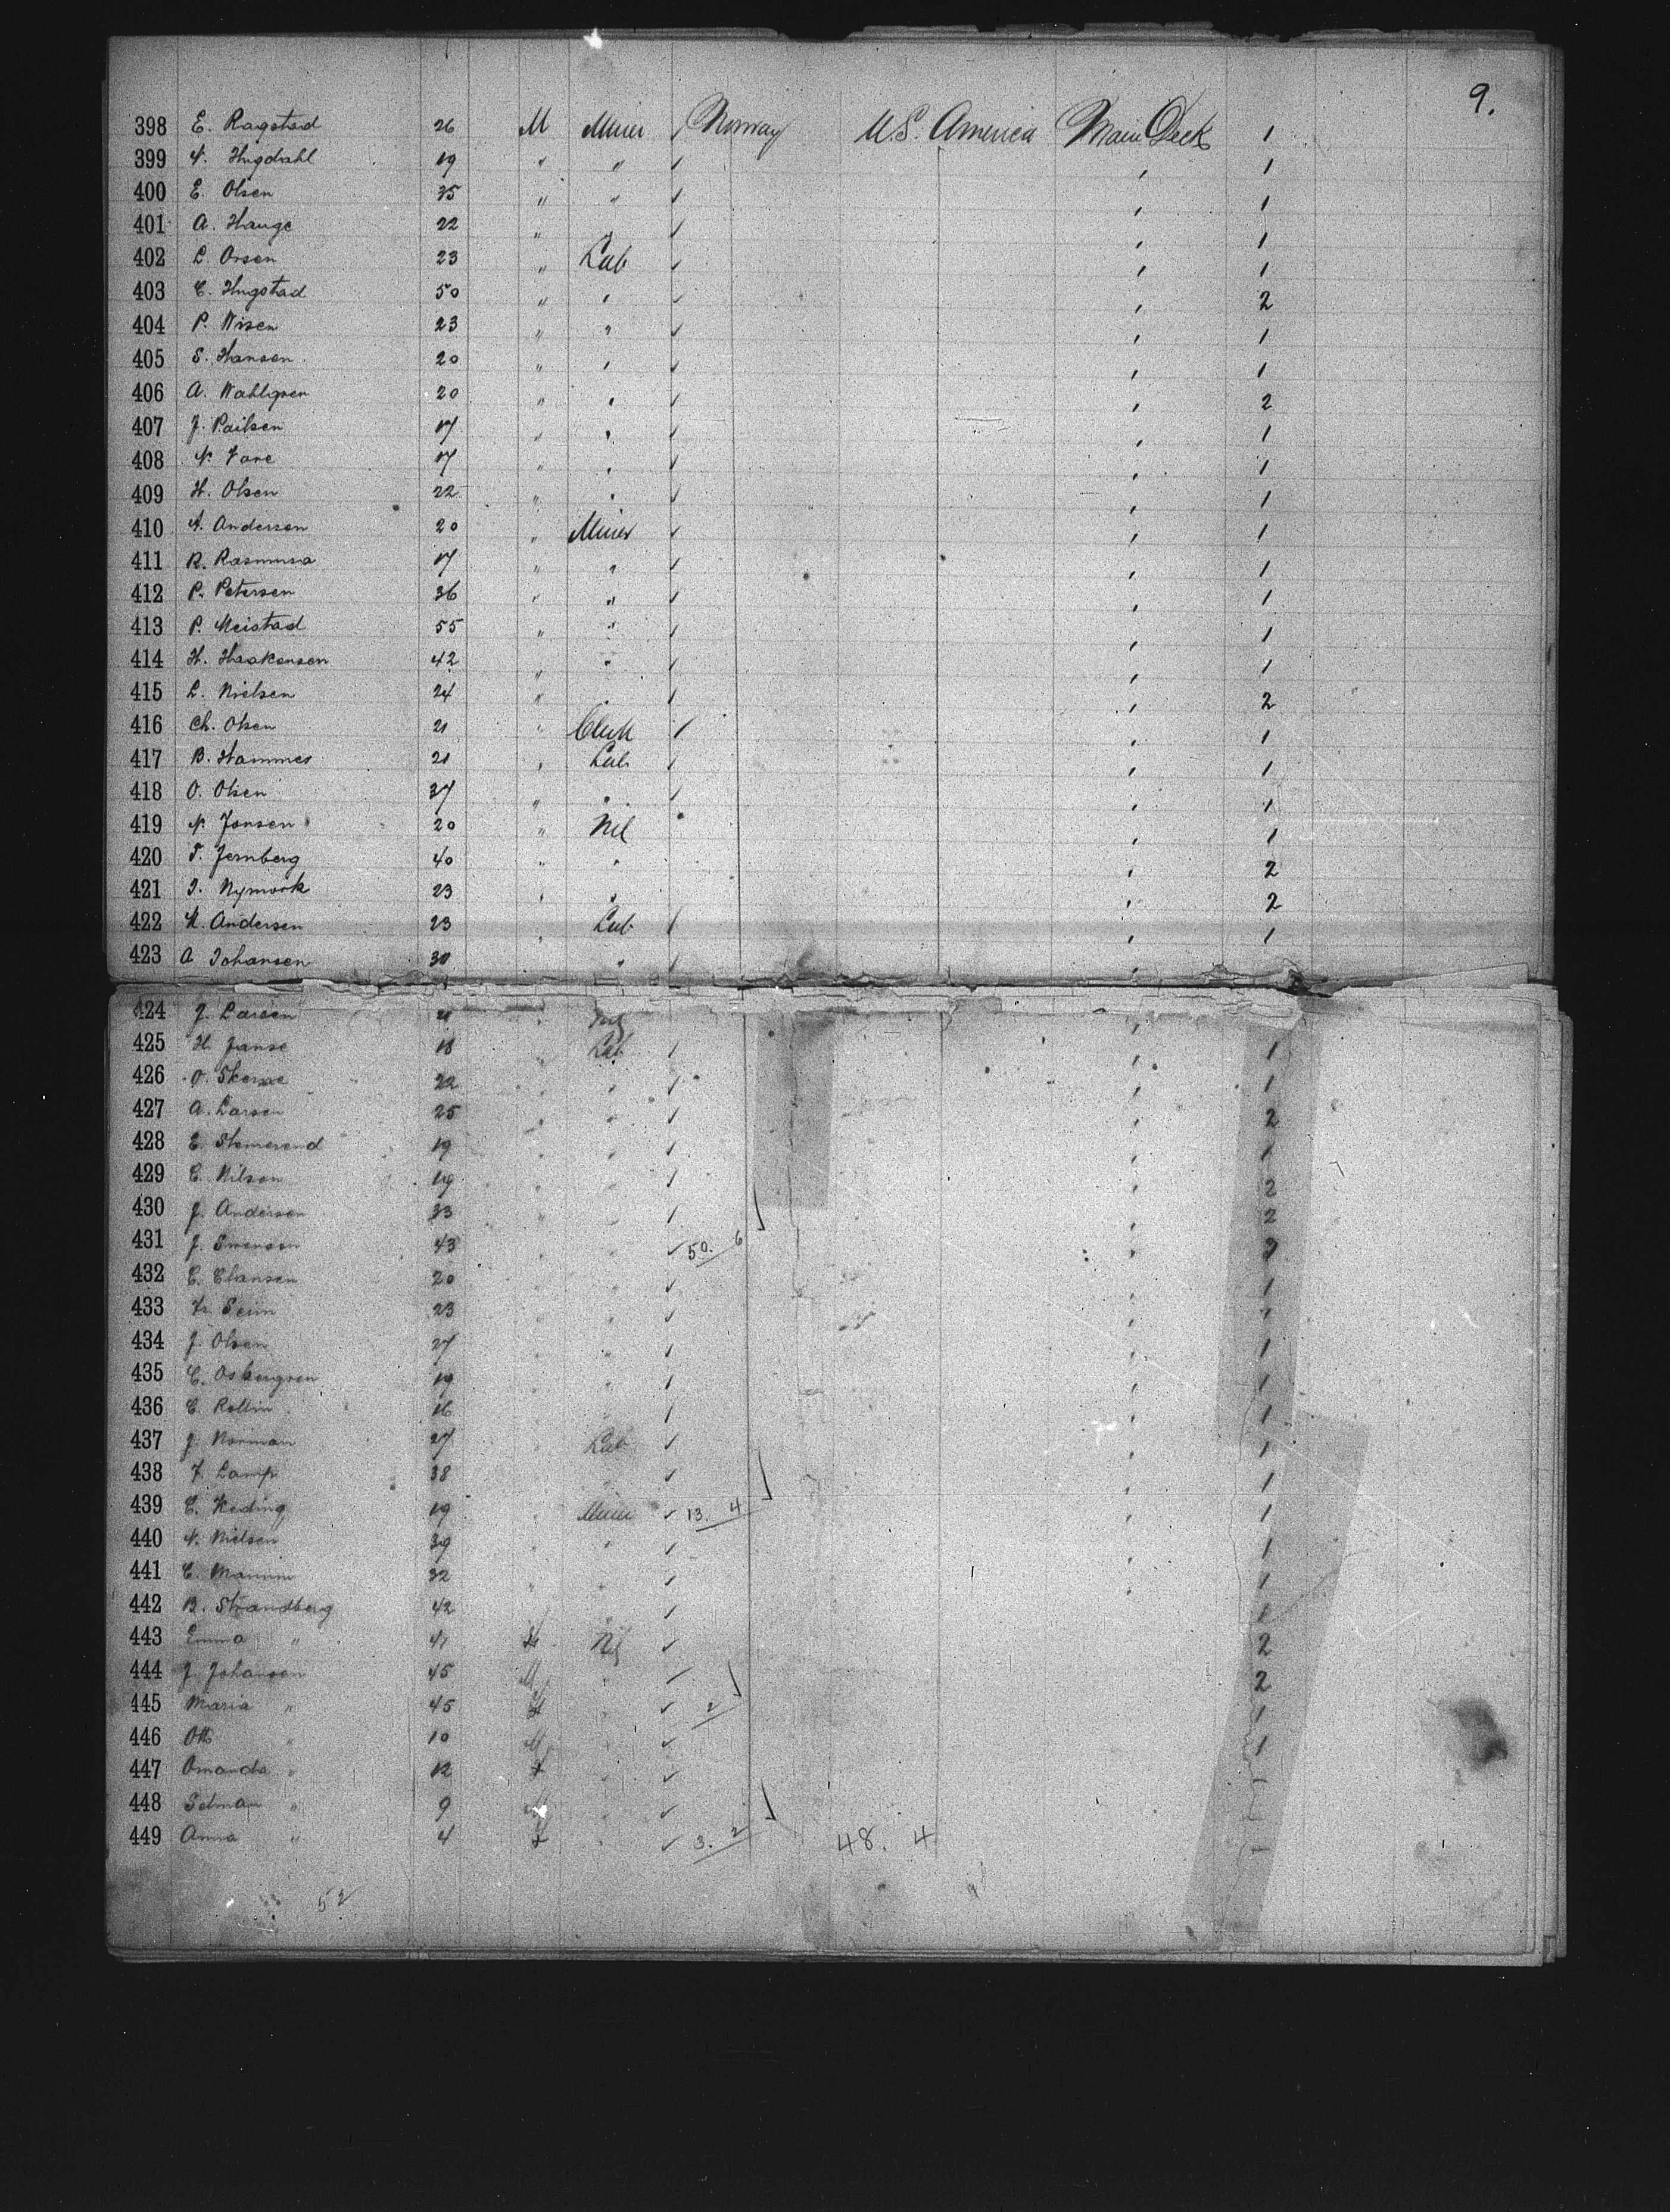 9.
398 E. Ragstad 26 M Miner Norway U.S. America Main Deck 1
399 N. Hugdahl 19 " " 1
400 E. Olsen 35 " " 1
401 A. Hauge 22 " " 1
402 L. Orsen 23 " Lab 1
403 E. Hugstad 50 " " 2
404 P. Nisen 23 " " 1
405 S. Hansen 20 " " 1
406 A. Wahlgren 20 " " 2
407 J. Pailsen 17 " " 1
408 N. 17 " " 1
409 H. Olsen 22 " " 1
410 A. Andersen 20 " Miner 1
411 R. Rasmusa 17 " " 1
412 P. Petersen 36 " " 1
413 P. Meistad 55 " " 1
414 H. Haakonsen 42 " " 1
415 L. Nielsen 24 " " 2
416 Ch. Olsen 21 " Clerk 1
417 B. Hammer 21 " Lab 1
418 O. Olsen 37 " " 1
419 N. Jonsen 20 " Nil 1
420 T. Jernberg 40 " " 2
421 I. Nymork 23 " " 2
422 M. Andersen 23 " Lab 1
423 A Johansen 30 "
424 J. Larsen 21 "
425 H. Janse 18 " Lab 1
426 O. 22 " " 1
427 A. Larsen 25 " " 2
428 E. 19 " " 1
429 E. Nilson 19 " " 2
430 J. Andersen 33 " " 2
431 J. Swenson 43 " " 50. 6
432 E. Clansen 20 " " 1
433 Fr. Seim 23 " "
434 J. Olsen 27 " " 1
435 C. Osbergren 19 " " 1
436 E. Rollin 16 " " 1
437 J. Norman 27 " Lab 1
438 F. Lamp 38 " " 1
439 E. Keding 19 " Miner 13. 4 1
440 N. Nielsen 39 " " 1
441 E. 32 " " 1
442 B. Strandberg 42 " " 1
443 Emma " 41 F Nil 2
444 J. Johansen 45 M " 2
445 Maria " 45 F " 2 1
446 Otto " 10 M " 1
447 Amanda " 12 F "
448 " 9 M "
449 Anna " 4 F " 3. 2 48. 4
52